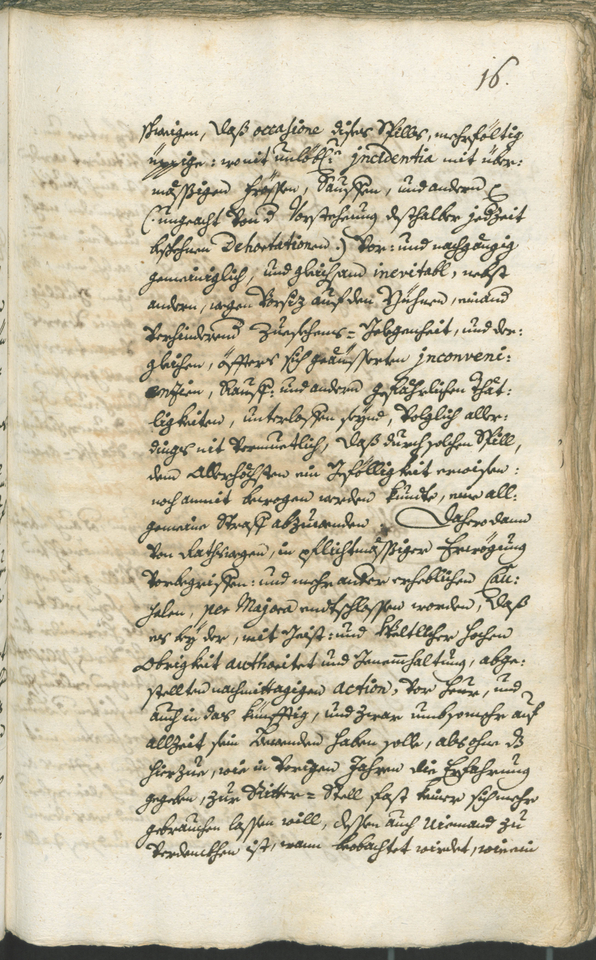 16.
schweigen, daß occasione dises Spills, mehrfältig
üppige: womit unlöbl: incidentia mit über:
mässigen fressen, Sauffen, und andern
(: ungeacht von d Vorstehung desthalber jedzeit
beschehnen Dehortationen :) vor: und nachgängig
gemeiniglich, und gleichsam inevitabl, nebst
andern, wegen Vorsiz auf den Bühnen, einand
verhinderend Zuesehens-Gelegenheit, und der:
gleichen, öffters sich geäusserten inconveni:
entien, Rauff: und andern gefährlichen thät:
ligkeiten, unterloffen seynd, volglich aller:
dings nit vermuetlich, daß durch solchen Spill,
dem Allerhöchsten ein Gefölligkeit erweisen:
noch annit bewogen werden kundte, eine all:
gemeine Straff abzuwenden. Dahero dann
von Rathswegen, in pflichtmässiger Erwögung
vorbegriffen: und mehr andter erheblichen Cau:
salen, per Majora entschlossen worden, daß
es bey der, mit Geist: und Weltlicher hochen
Obrigkeit authoritet und Genemhaltung, abge:
stellten nachmittagigen action, vor heur, und
auch in das künfftig, und zwar umb so mehr auf
allzeit sein Bewenden haben solle, als ohne dß
hierzue, wie in vorigen Jahren die Erfahrung
gegeben, zur Ritter-Stell fast keiner sich mehr
gebrauchen lassen will, dessen auch Niemand zu
verdenckhen ist, wann beobachtet wirdet, wie ein